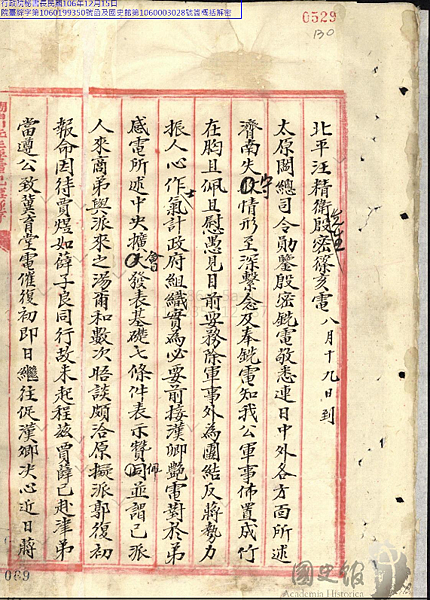 行政院秘書長民國106年12月15日
院臺綜字第1060199350號函及國史館第1060003028號簽概括解密
0529
130
北平汪精衛先生殷密篠亥電八月十九日到
太原閻總司令勛鑒殷密銑電敬悉連日中外各方面所述
濟南失守情形至深繫念及奉銑電知我公軍事佈置成竹
在胸且佩且慰愚見目前要務除軍事外為團結反蔣勢力
振人心作士氣計政府組織實為必要前接漢卿艷電對於弟
感電所述中央擴會發表基礎七條件表示贊佩並謂已派
人來商弟與派來之湯爾和數次晤談頗洽原擬派郭復初
報命因待賈煜如薛子良同行故未起程茲賈薛已赴津弟
當遵公致冀育堂電催復初即日繼往促漢卿決心近日蔣
089
國史館
Academia Historica